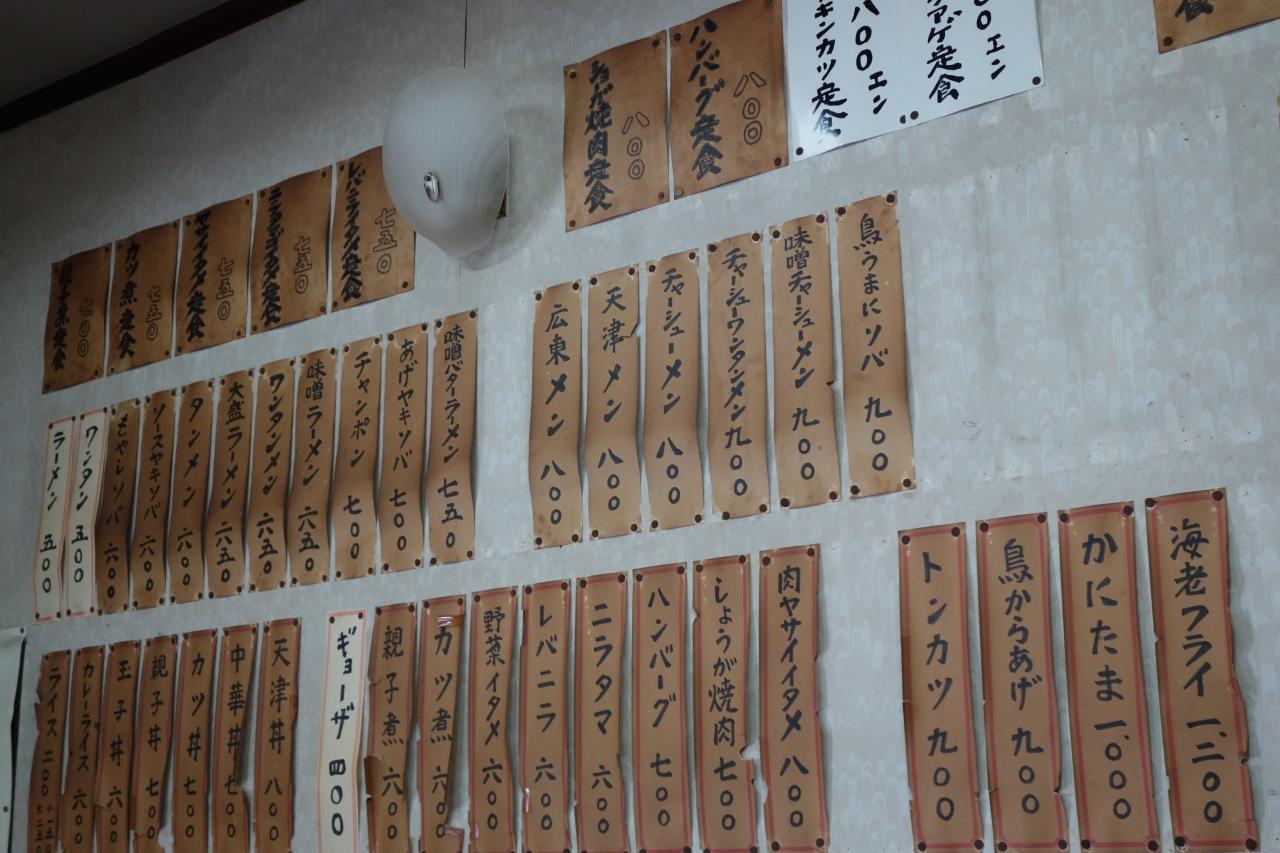 ハンバーグ定食 八〇〇
ショーガ焼肉定食 八〇〇
キンカツ定食
八〇〇エン
アゲ定食
〇〇エン
定食
レバニライタメ定食 七五〇
七五〇
ヤサイイタメ定食 七五〇
カツ煮定食 七五〇
親子煮定食 七〇〇
鳥うまにソバ 九〇〇
味噌チャーシューメン 九〇〇
チャーシューワンタンメン 九〇〇
チャーシューメン 八〇〇
天津メン 八〇〇
広東メン 八〇〇
味噌バターラーメン 七五〇
あげヤキソバ 七〇〇
チャンポン 七〇〇
味噌ラーメン 六五〇
ワンタンメン 六五〇
大盛ラーメン 六五〇
タンメン 六〇〇
ソースヤキソバ 六〇〇
もやしソバ 六〇〇
ワンタン 五〇〇
ラーメン 五〇〇
海老フライ 一、二〇〇
かにたま 一、〇〇〇
鳥からあげ 九〇〇
トンカツ 九〇〇
肉ヤサイイタメ 八〇〇
しょうが焼肉 七〇〇
ハンバーグ 七〇〇
ニラタマ 六〇〇
レバニラ 六〇〇
野菜イタメ 六〇〇
カツ煮 六〇〇
親子煮 六〇
ギョーザ 四〇〇
天津丼 八〇〇
中華丼 七〇〇
カツ丼 七〇〇
親子丼 七〇〇
玉子丼 六〇〇
カレーライス 六〇〇
ライス 二〇〇
小一五〇
大二五〇